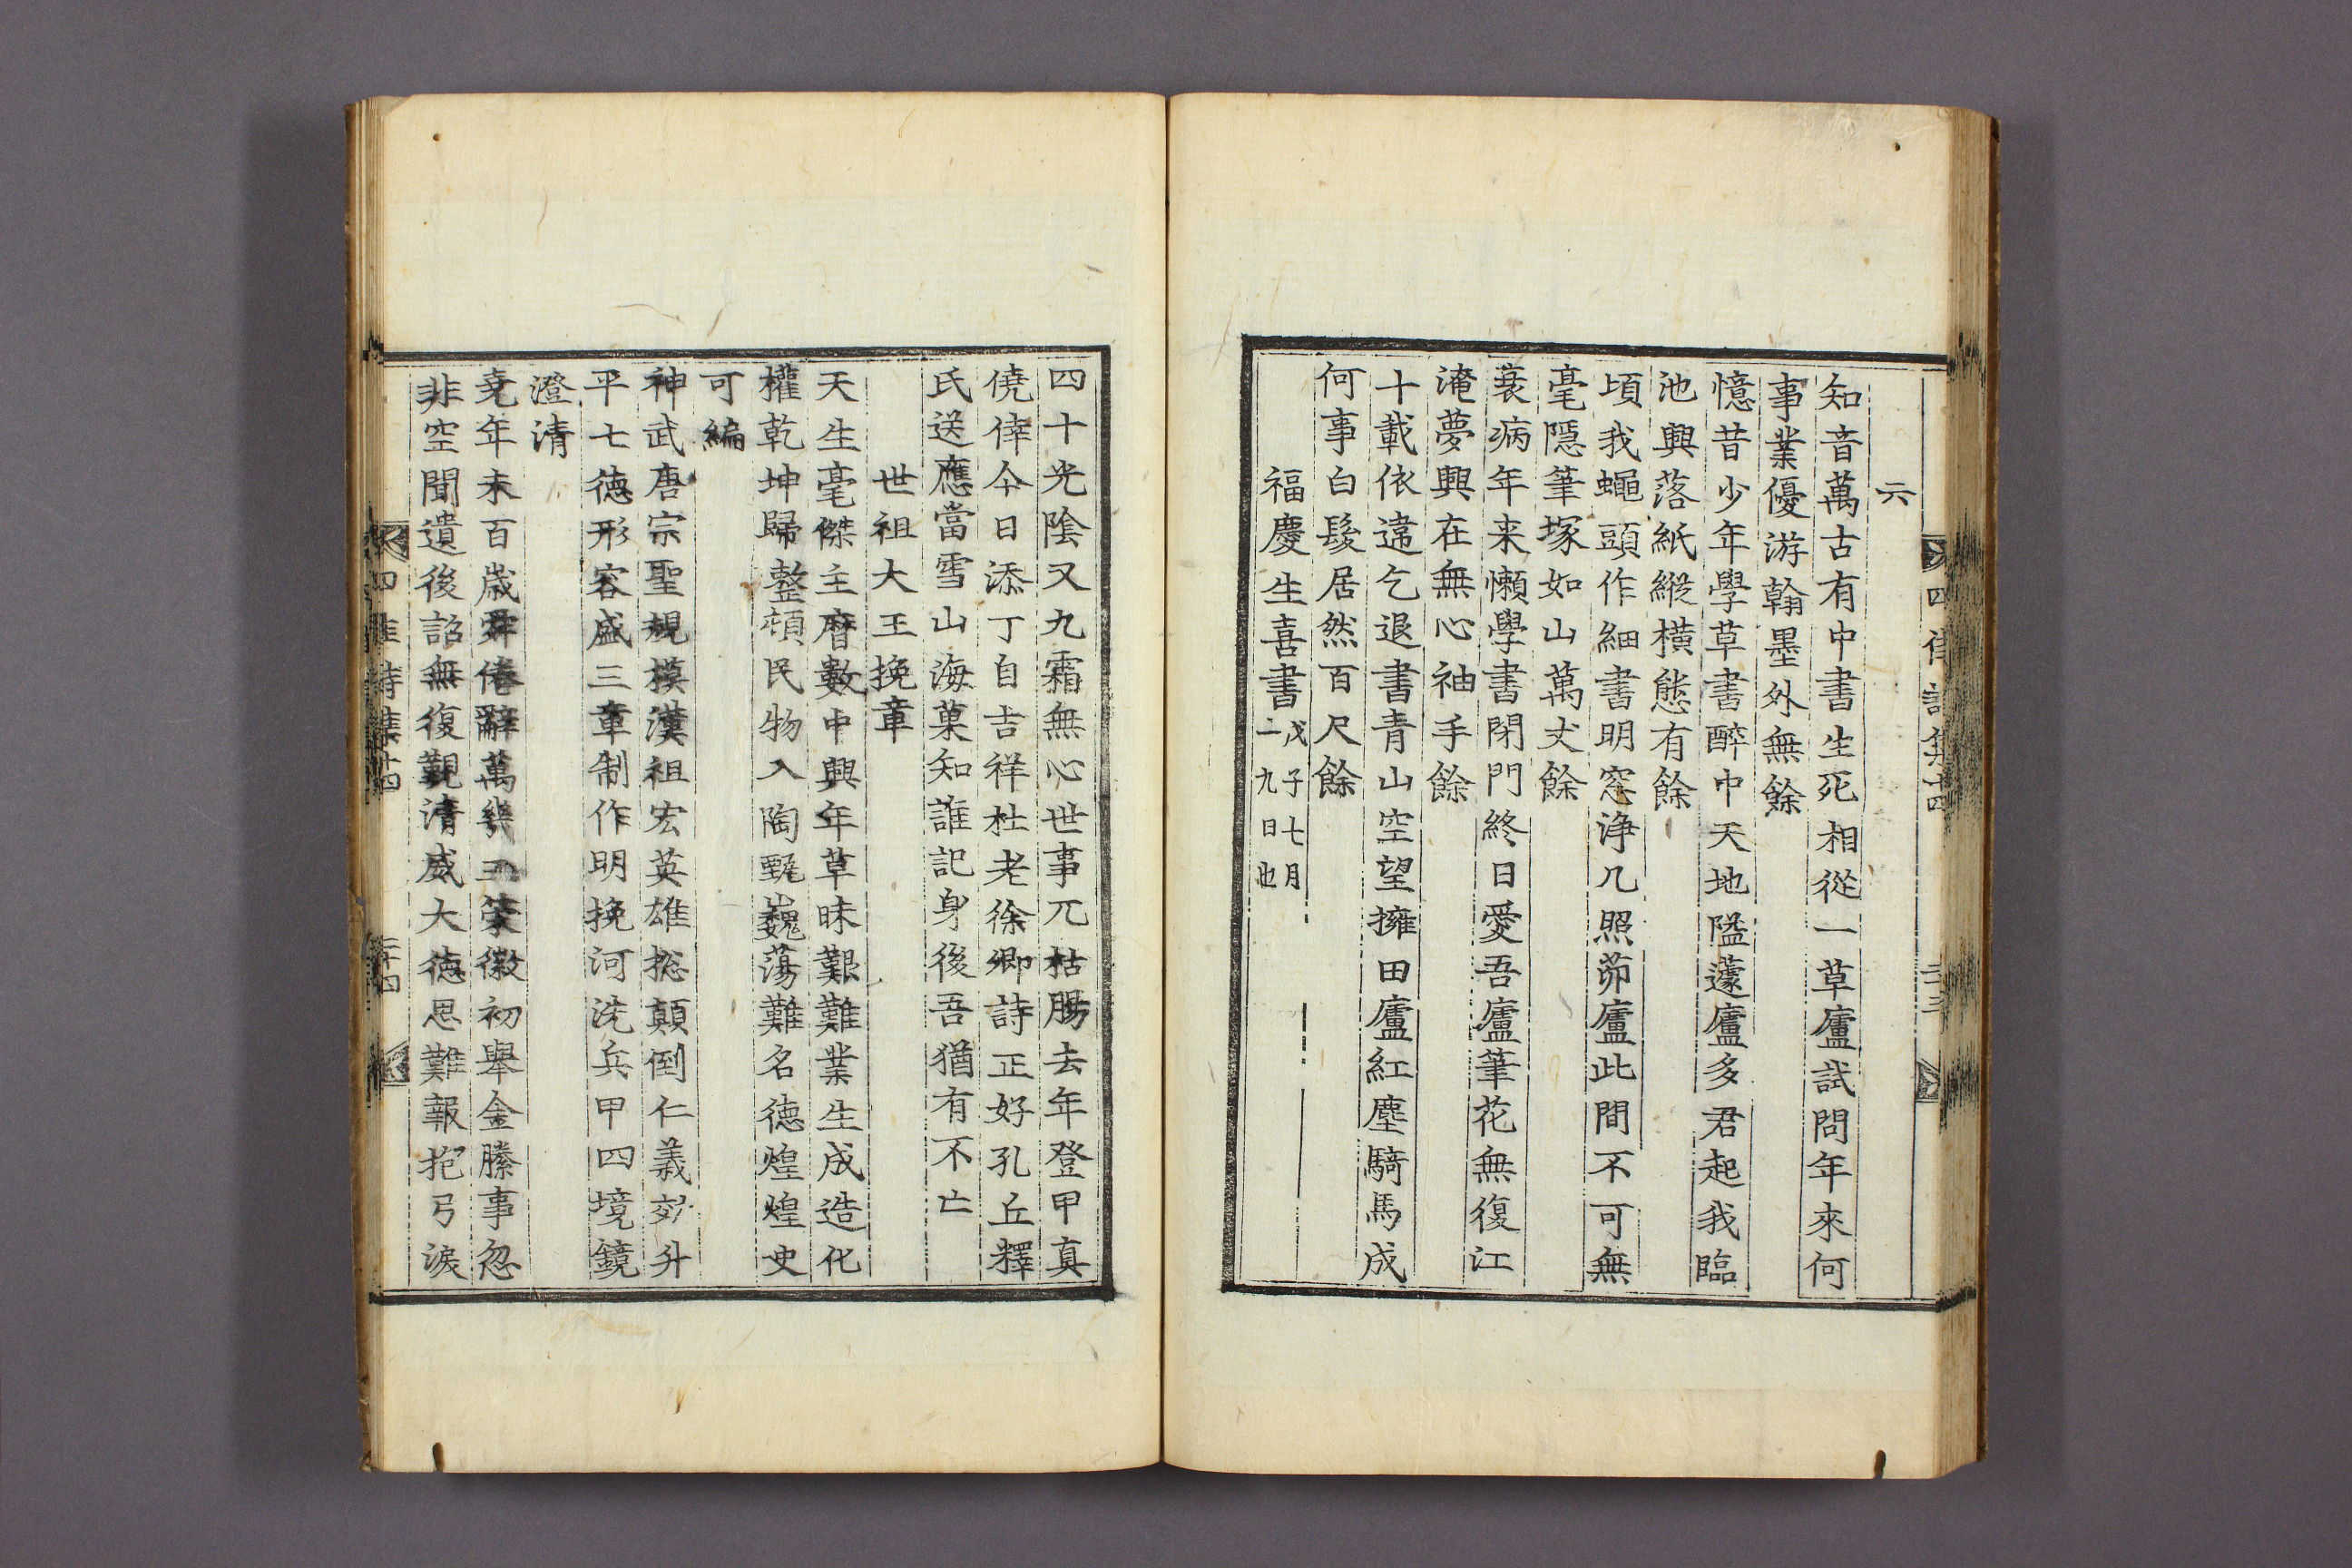 四佳詩集十四
二十三
六
知音萬古有中書生死相從一草廬試問年來何
事業優游翰墨外無餘
憶昔少年學草書醉中天地隘蘧廬多君起我臨
池興落紙縱横態有餘
頃我蠅頭作細書明窓浄几照茆廬此間不可無
毫隱筆塚如山萬丈餘
衰病年来懶學書閉門終日愛吾廬筆花無復江
淹夢興在無心袖手餘
十載依違乞退書青山空望擁田廬紅塵騎馬成
何事白髮居然百尺餘
福慶生喜書
戊子七月
二九日也
四十光陰又九霜無心世事兀枯腸去年登甲真
僥倖今日添丁自吉祥杜老徐卿詩正好孔丘釋
氏送應當雪山海菓知誰記身後吾猶有不亡
世祖大王挽章
天生毫傑主曆數中興年草昧艱難業生成造化
權乾坤歸整頓民物入陶甄巍蕩難名德煌煌史
可編
神武唐宗聖規模漢祖宏英雄捴顛倒仁義效升
平七德形容盛三章制作明挽河洗兵甲四境鏡
澄清
堯年未百歲舜倦辭萬幾 榮徽初舉金縢事忽
非空聞遺後詔無復覲清威大德恩難報抱弓淚
四佳詩集十四
二十四